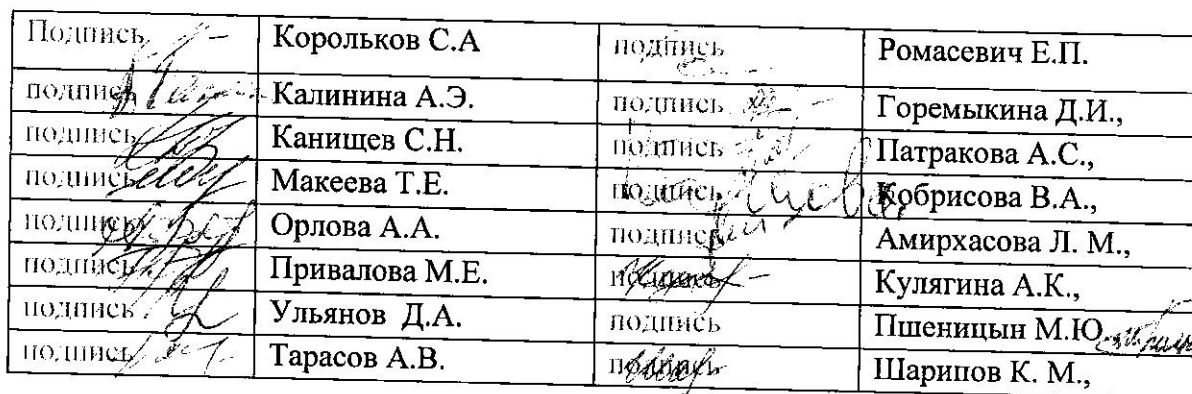 Подпись Корольков С.А подпись Ромасевич Е.П.
подпись Калинина А.Э. подпись Горемыкина Д.И.,
подпись Канищев С.Н. подпись Патракова А.С.,
подпись Макеева Т.Е. подпись Кобрисова В.А.,
подпись Орлова А.А. подпись Амирхасова Л. М.,
подпись Привалова М.Е. подпись Кулягина А.К.,
подпись Ульянов Д.А. подпись Пшеницын М.Ю
подпись Тарасов А.В. подпись Шарипов К. М.,